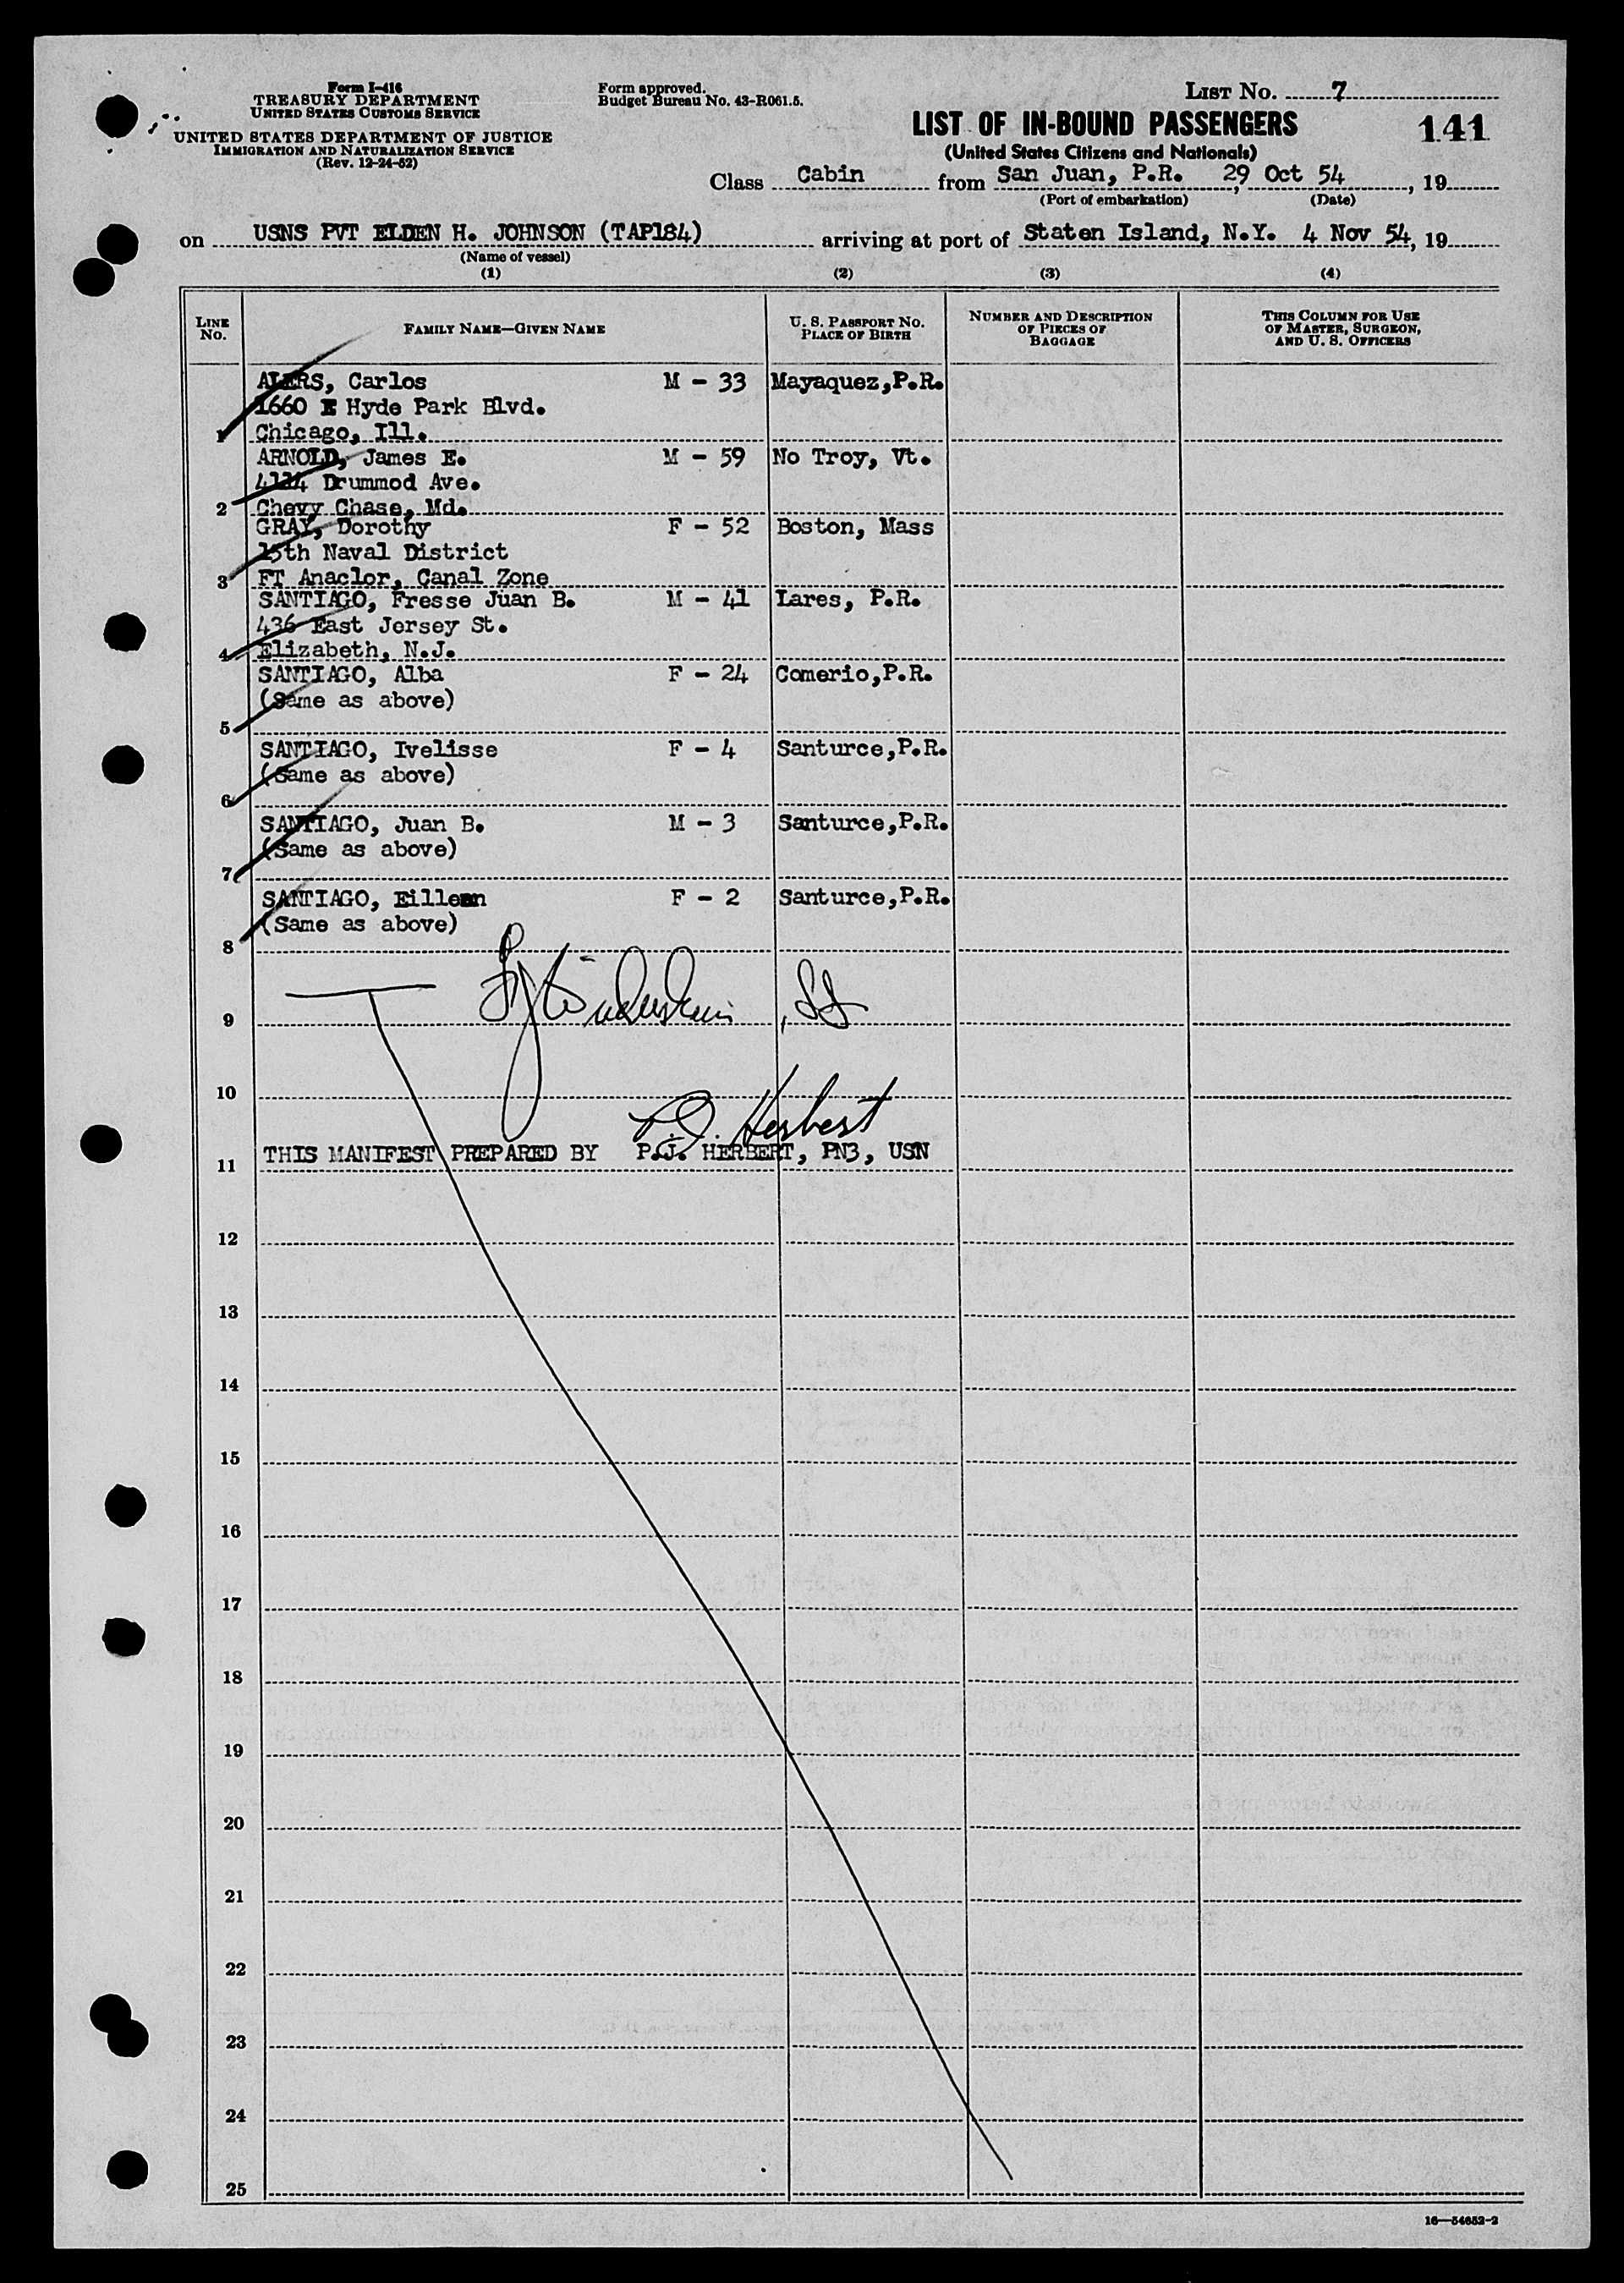 Form I-416
TREASURY DEPARTMENT
UNITED STATES CUSTOMS SERVICE
UNITED STATES DEPARTMENT OF JUSTICE
IMMIGRATION AND NATURALIZATION SERVICE
(Rev. 12-24-52)
Form approved.
Budget Bureau No. 43-R061.5.
LIST NO. 7
LIST OF IN-BOUND PASSENGERS 141
(United States Citizens and Nationals)
Class Cabin from San Juan, P.R. 29 Oct 54, 19
(Port of embarkation) (Date)
on USNS PVT ELDEN H. JOHNSON (TAP184) arriving at port of Staten Island, N.Y. 4 Nov 54, 19
(Name of vessel)
(1) (2) (3) (4)
LINE NO. FAMILY NAME—GIVEN NAME U. S. PASSPORT NO. PLACE OF BIRTH NUMBER AND DESCRIPTION OF PIECES OF BAGGAGE THIS COLUMN FOR USE OF MASTER, SURGEON, AND U. S. OFFICERS
ALERS, Carlos M - 33 Mayaquez,P.R.
1660 E Hyde Park Blvd.
1 Chicago, Ill.
ARNOLD, James E. M - 59 No Troy, Vt.
4114 Drummod Ave.
2 Chevy Chase, Md.
GRAY, Dorothy F - 52 Boston, Mass
15th Naval District
3 FT Anaclor, Canal Zone
SANTIAGO, Fresse Juan B. M - 41 Lares, P.R.
436 East Jersey St.
4 Elizabeth, N.J.
SANTIAGO, Alba F - 24 Comerio,P.R.
(Same as above)
5
SANTIAGO, Ivelisse F - 4 Santurce,P.R.
(Same as above)
6
SANTIAGO, Juan B. M - 3 Santurce,P.R.
(Same as above)
7
SANTIAGO, Eilleen F - 2 Santurce,P.R.
(Same as above)
8
9
10
P.J. Herbert
11 THIS MANIFEST PREPARED BY P.J. HERBERT, PN3, USN
12
13
14
15
16
17
18
19
20
21
22
23
24
25
16—54652-2